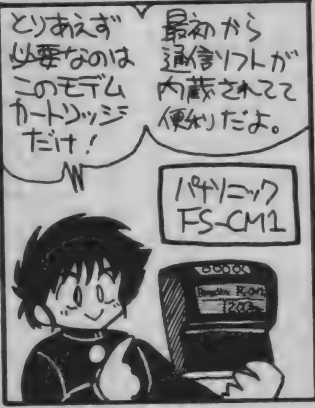 とりあえず
必要なのは
このモデム
カートリッジ
だけ!
最初から
通信ソフトが
内蔵されてて
便利だよ。
パナソニック
FS-CM1